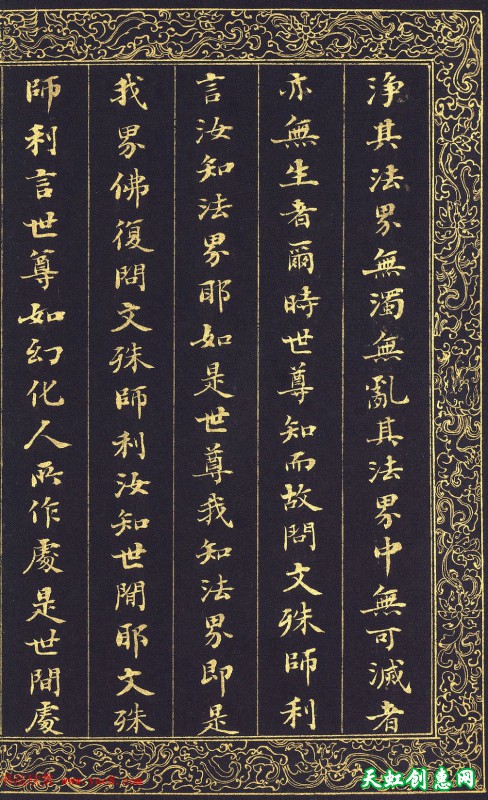 淨其法界無濁無亂其法界中無可滅者
亦無生者爾時世尊知而故問文殊師利
言汝知法界耶如是世尊我知法界即是
我界佛復問文殊師利汝知世間耶文殊
師利言世尊如幻化人所作處是世間處
天虹创惠网